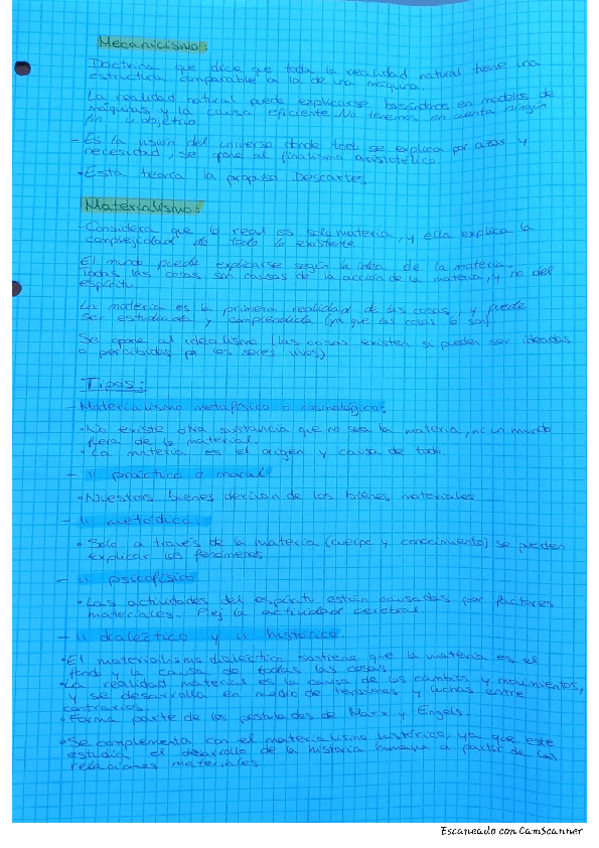 Mecanicismo:
Doctrina que dice que toda la realidad natural tiene una
estructura comparable a la de una máquina.
La realidad natural puede explicarse basándonos en modelos de
máquinas y la causa eficiente. No tenemos en cuenta ningún
fin u objetivo.
- Es la visión del universo donde todo se explica por azar y
necesidad, se opone al finalismo aristotélico
• Esta teoría la propuso Descartes
Materialismo:
- Considera que lo real es solo materia, y ella explica la
complejidad de todo lo existente
El mundo puede explicarse según la idea de la materia.
Todas las cosas son causas de la acción de la materia, y no del
espíritu
La materia es la primera realidad de las cosas, y puede
ser estudiada y comprendida (ya que las cosas lo son)
Se opone al idealismo (las cosas existen si pueden ser ideadas
o percibidas por los seres vivos)
Tipos:
- Materialismo metafísico o cosmológico:
• No existe otra sustancia que no sea la materia, ni un mundo
fuera de lo material.
• La materia es el origen y causa de todo.
- " práctico o moral
• Nuestros bienes derivan de los bienes materiales
- " metódico:
• Solo a través de la materia (cuerpo y conocimiento) se pueden
explicar los fenómenos
- " psicofísico
• Las actividades del espíritu están causadas por factores
materiales. P.ej la actividad cerebral
- " dialéctico y " histórico
• El materialismo dialéctico sostiene que la materia es el
fondo y la causa de todas las cosas.
• La realidad material es la causa de los cambios y movimientos,
y se desarrolla en medio de tensiones y luchas entre
contrarios.
• Forma parte de los postulados de Marx y Engels.
• Se complementa con el materialismo histórico, ya que este
estudia el desarrollo de la historia humana a partir de las
relaciones materiales
Escaneado con CamScanner